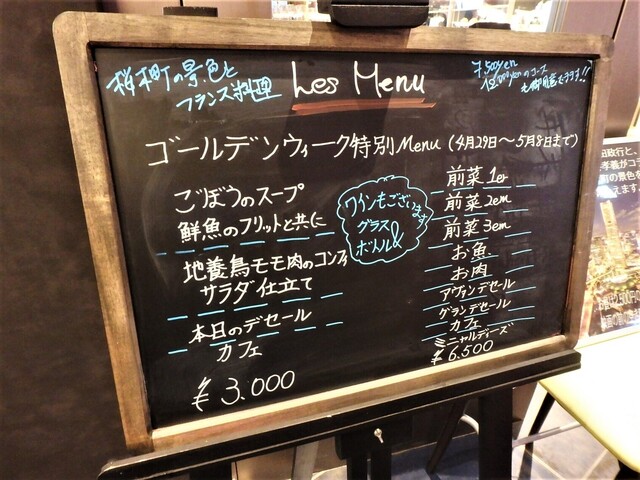 桜町の景色と
フランス料理
Les Menu
7,500yen
10,000yenのコース
も御用意してます!!
ゴールデンウィーク特別Menu (4月29日〜5月8日まで)
ごぼうのスープ
鮮魚のフリットと共に
地養鳥モモ肉のコンフィ
サラダ仕立て
本日のデセール
カフェ
¥3.000
ワインもございます
グラス
&ボトル
前菜1er
前菜2em
前菜3em
お魚
お肉
アヴァンデセール
グランデセール
カフェ
ミニャルディーズ
¥6.500